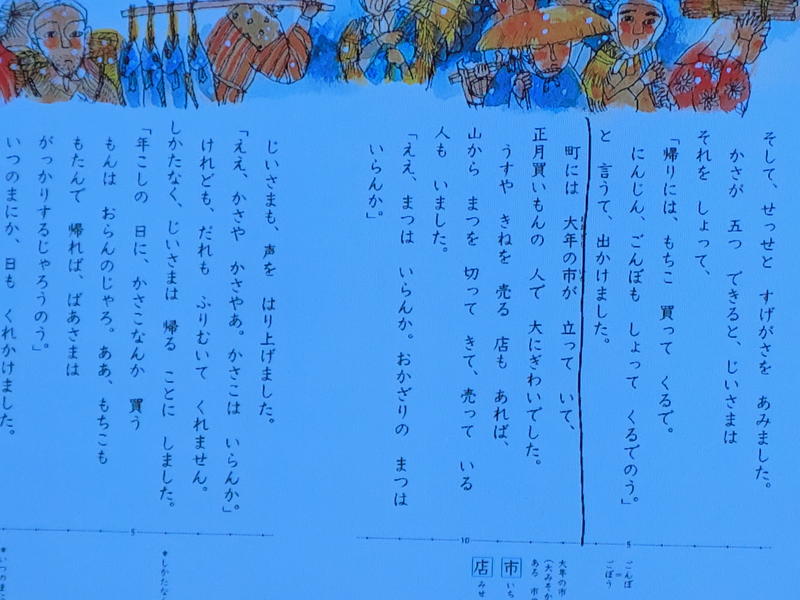 そして、せっせと すげがさを あみました。
かさが 五つ できると、じいさまは
それを しょって、
「帰りには、もちこ 買って くるで。
にんじん、ごんぼも しょって くるでのう。」
と 言うて、出かけました。
町には 大年の市が 立って いて、
正月買いもんの 人で 大にぎわいでした。
うすや きねを 売る 店も あれば、
山から まつを 切って きて、売って いる
人も いました。
「ええ、まつは いらんか。おかざりの まつは
いらんか。」
じいさまも、声を はり上げました。
「ええ、かさや かさやあ。かさこは いらんか。」
けれども、だれも ふりむいて くれません。
しかたなく、じいさまは 帰る ことに しました。
「年こしの 日に、かさこなんか 買う
もんは おらんのじゃろ。ああ、もちこも
もたんで 帰れば、ばあさまは
がっかりするじゃろうのう。」
いつのまにか、日も くれかけました。
5
ごんぼ
=
ごぼう
大年の市
市 いち
店 みせ
10
5